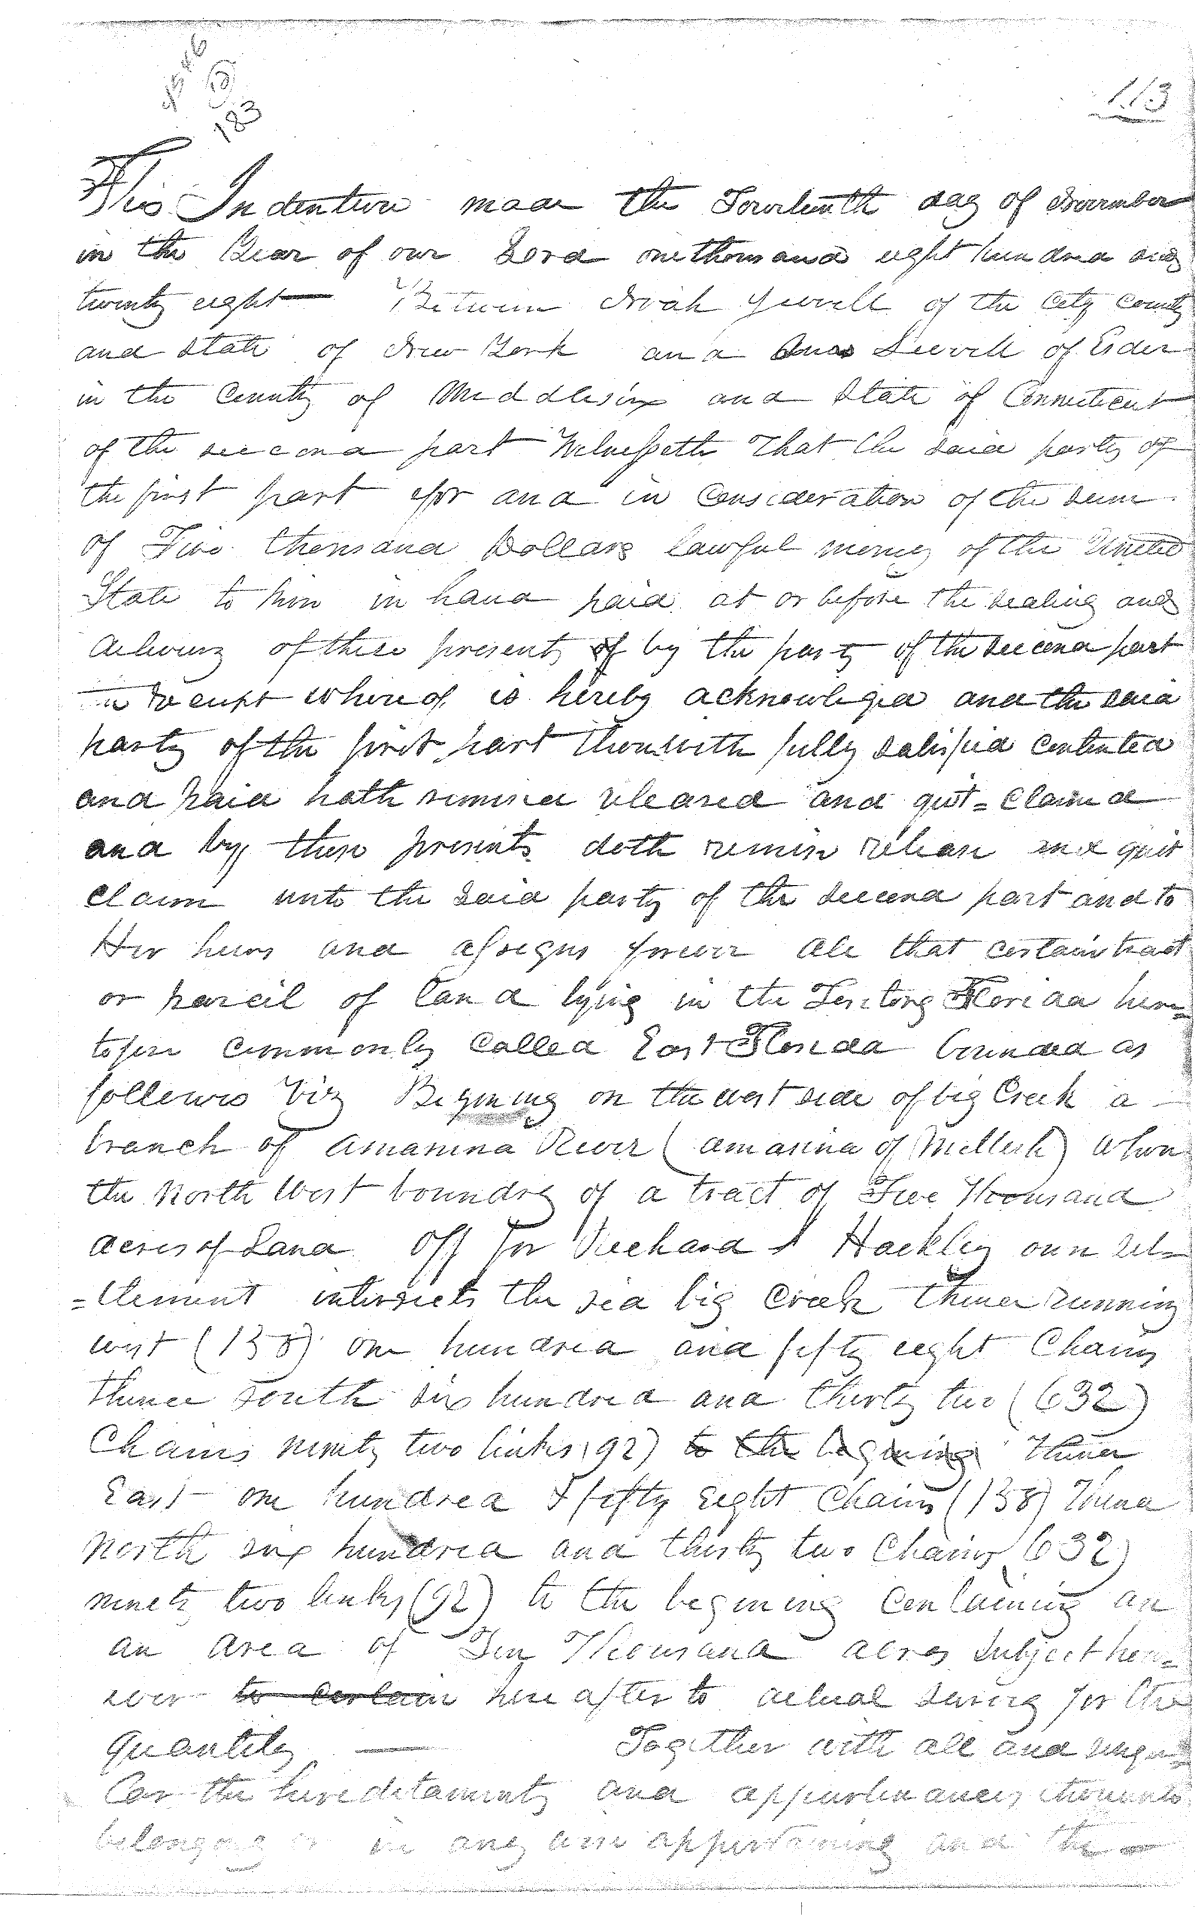 183
113
This Indenture made the Fourteenth day of November
in the Year of our Lord one thousand eight hundred and
twenty eight — Between Noah of the City County
and State of New York and of
in the County of Middlesex and State of Connecticut
of the second part Witnesseth That the said party of
the first part for and in Consideration of the sum
of Five thousand Dollars lawful money of the United
State to him in hand paid at or before the sealing and
delivery of these presents by the party of the second part
receipt whereof is hereby acknowleged and the said
party of the first part therewith fully satisfied contented
and paid hath remised released and quit = Claimed
and by these presents doth remise release and quit
Claim unto the said party of the second part and to
Her heirs and assigns forever all that certain tract
or parceil of land lying in the Teritory Florida here=
tofore commonly Called East Florida bounded as
follows Viz Begining on the west side of big Creek a
branch of Amanina River (amasina of Millech) where
the North West boundry of a tract of Five Thousand
acres of Land off for Richard S Hackley own set=
=tlement intersects the sea big Creek thence running
west (158) one hundred and fifty eight Chains
thence south six hundred and thirty two (632)
Chains ninety two links (92) to the begining thence
East one hundred & fifty eight Chains (158) thence
North six hundred and thirty two Chains (632)
ninety two links (92) to the begining containing an
an area of Ten Thousand acres subject how=
ever to certain here after to actual survey for the
quantity — Together with all and singu=
lar the heredetaments and appurtenances thereunto
belonging or in any wise appertaining and the —